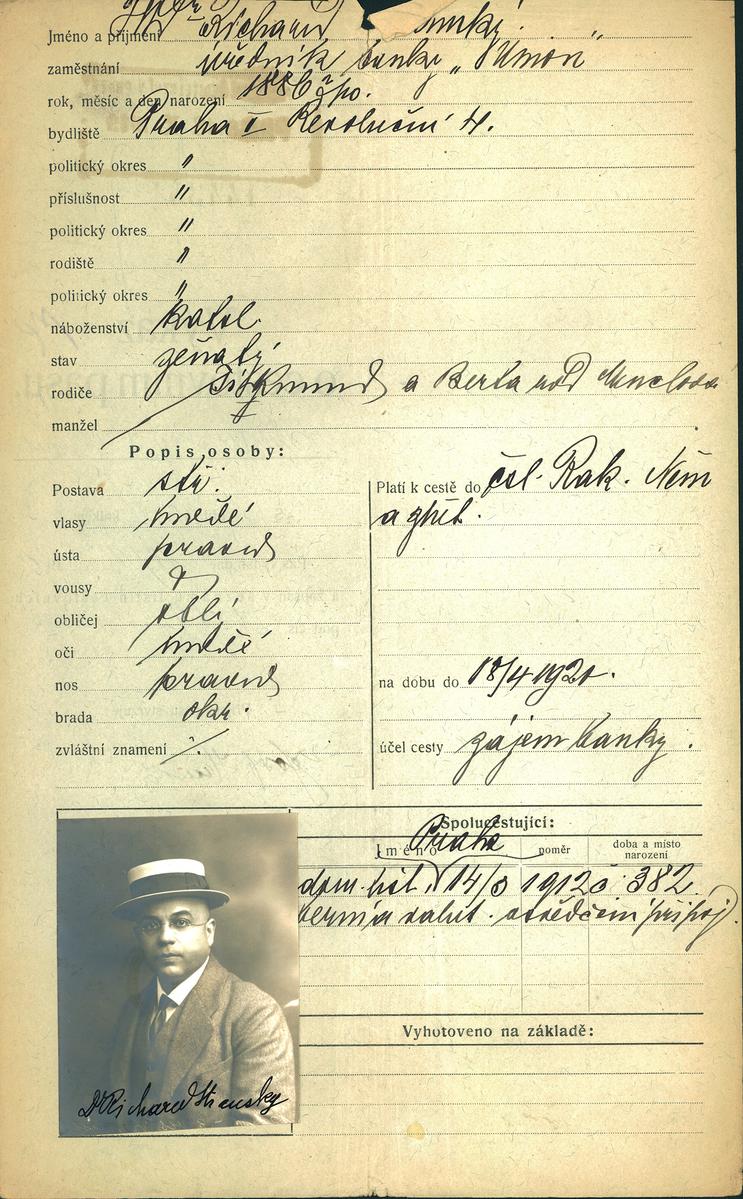 Jméno a příjmení JUDr Richard
zaměstnání úředník banky „Union"
rok, měsíc a den narození 1886
bydliště Praha I Revoluční 4.
politický okres "
příslušnost "
politický okres "
rodiště "
politický okres "
náboženství katol.
stav ženatý
rodiče Sigmund a Berta rod
manžel
Popis osoby:
Postava stř.
vlasy hnědé
ústa pravid
vousy
obličej oblí
oči hnědé
nos pravid
brada okr.
zvláštní znamení ./.
Platí k cestě do čsl. Rak. Něm
a zpět.
na dobu do 18/4 1921.
účel cesty zájem banky.
Spolucestující:
Praha
Jméno poměr doba a místo narození
dom. list. 14/3 1912 č 382
berní a valut. osvědčení připoj.
Vyhotoveno na základě:
Dr Richard Stransky